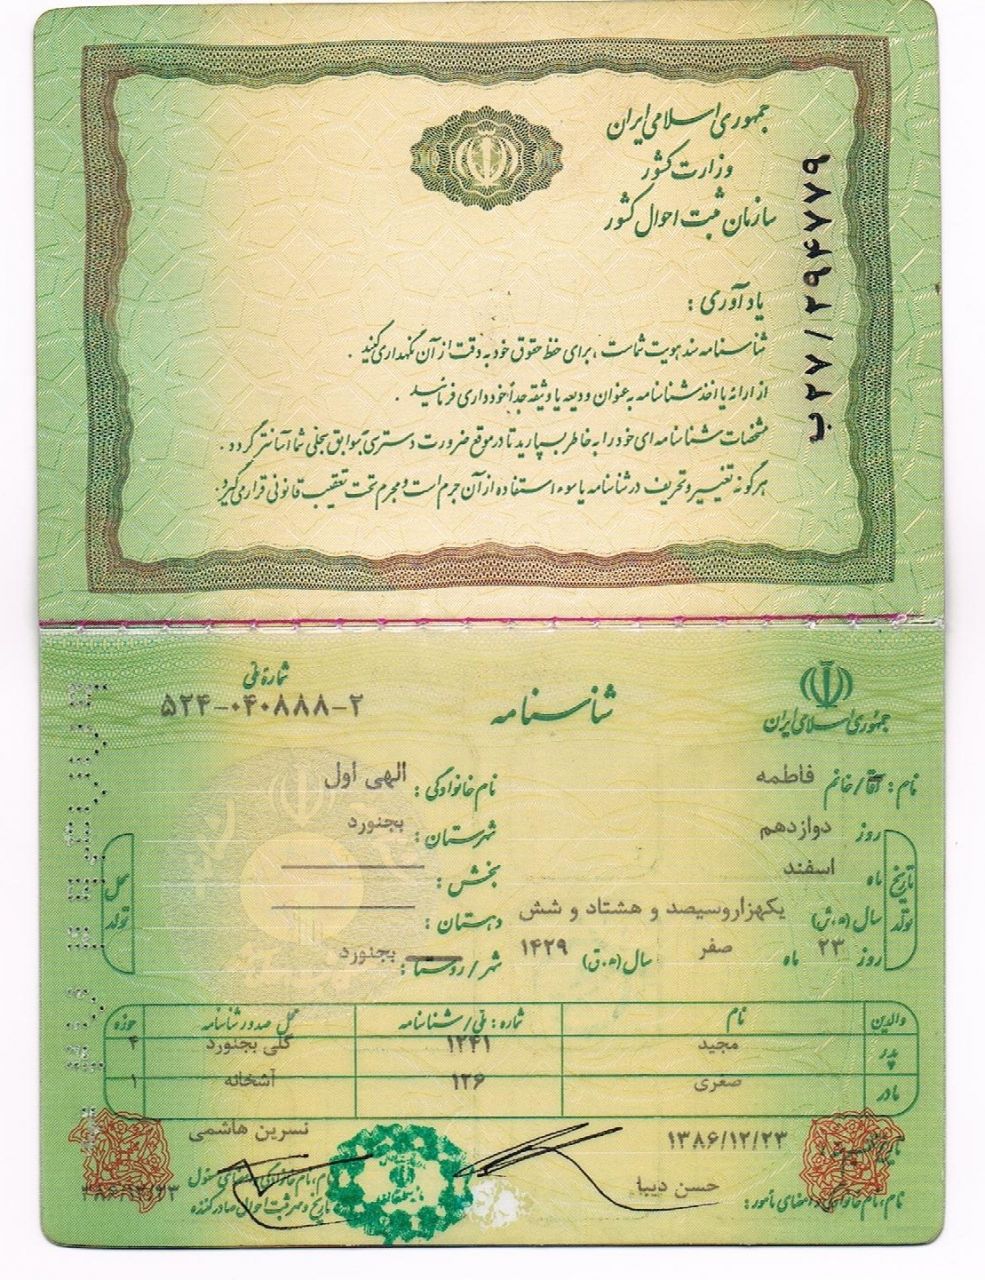 جمهوری اسلامی ایران
وزارت کشور
سازمان ثبت احوال کشور
ب۲۷/۲۹۴۷۷۹
یادآوری :
شناسنامه سند هویت شماست ، برای حفظ حقوق خود به دقت از آن نگهداری کنید .
از ارائه یا اخذ شناسنامه به عنوان ودیعه یا وثیقه جداً خودداری فرمائید .
مشخصات شناسنامه ای خود را به خاطر بسپارید تا در موقع ضرورت دسترسی بسوابق سجلی شما آسانتر گردد .
هرگونه تغییر و تحریف در شناسنامه یا سوء استفاده از آن جرم است و مجرم تحت تعقیب قانونی قرار می گیرد .
جمهوری اسلامی ایران
شناسنامه
شمارهٔ ملی
۵۲۴-۰۴۰۸۸۸-۲
نام : آقا/خانم فاطمه
نام خانوادگی : الهی اول
تاریخ تولد
روز دوازدهم
ماه اسفند
سال (ه.ش) یکهزاروسیصد و هشتاد و شش
روز ۲۳ ماه صفر سال (ه.ق) ۱۴۲۹
محل تولد
شهرستان : بجنورد
بخش :
دهستان :
شهر/روستا : بجنورد
والدین نام شماره : ملی/شناسنامه محل صدور شناسنامه حوزه
پدر مجید ۱۲۴۱ گلی بجنورد ۴
مادر صغری ۱۲۶ آشخانه ۱
۱۳۸۶/۱۲/۲۳
نسرین هاشمی
نام ، نام خانوادگی و امضای مأمور : حسن دیبا
نام ، نام خانوادگی و امضای مسئول
تاریخ و مهر ثبت احوال صادر کننده